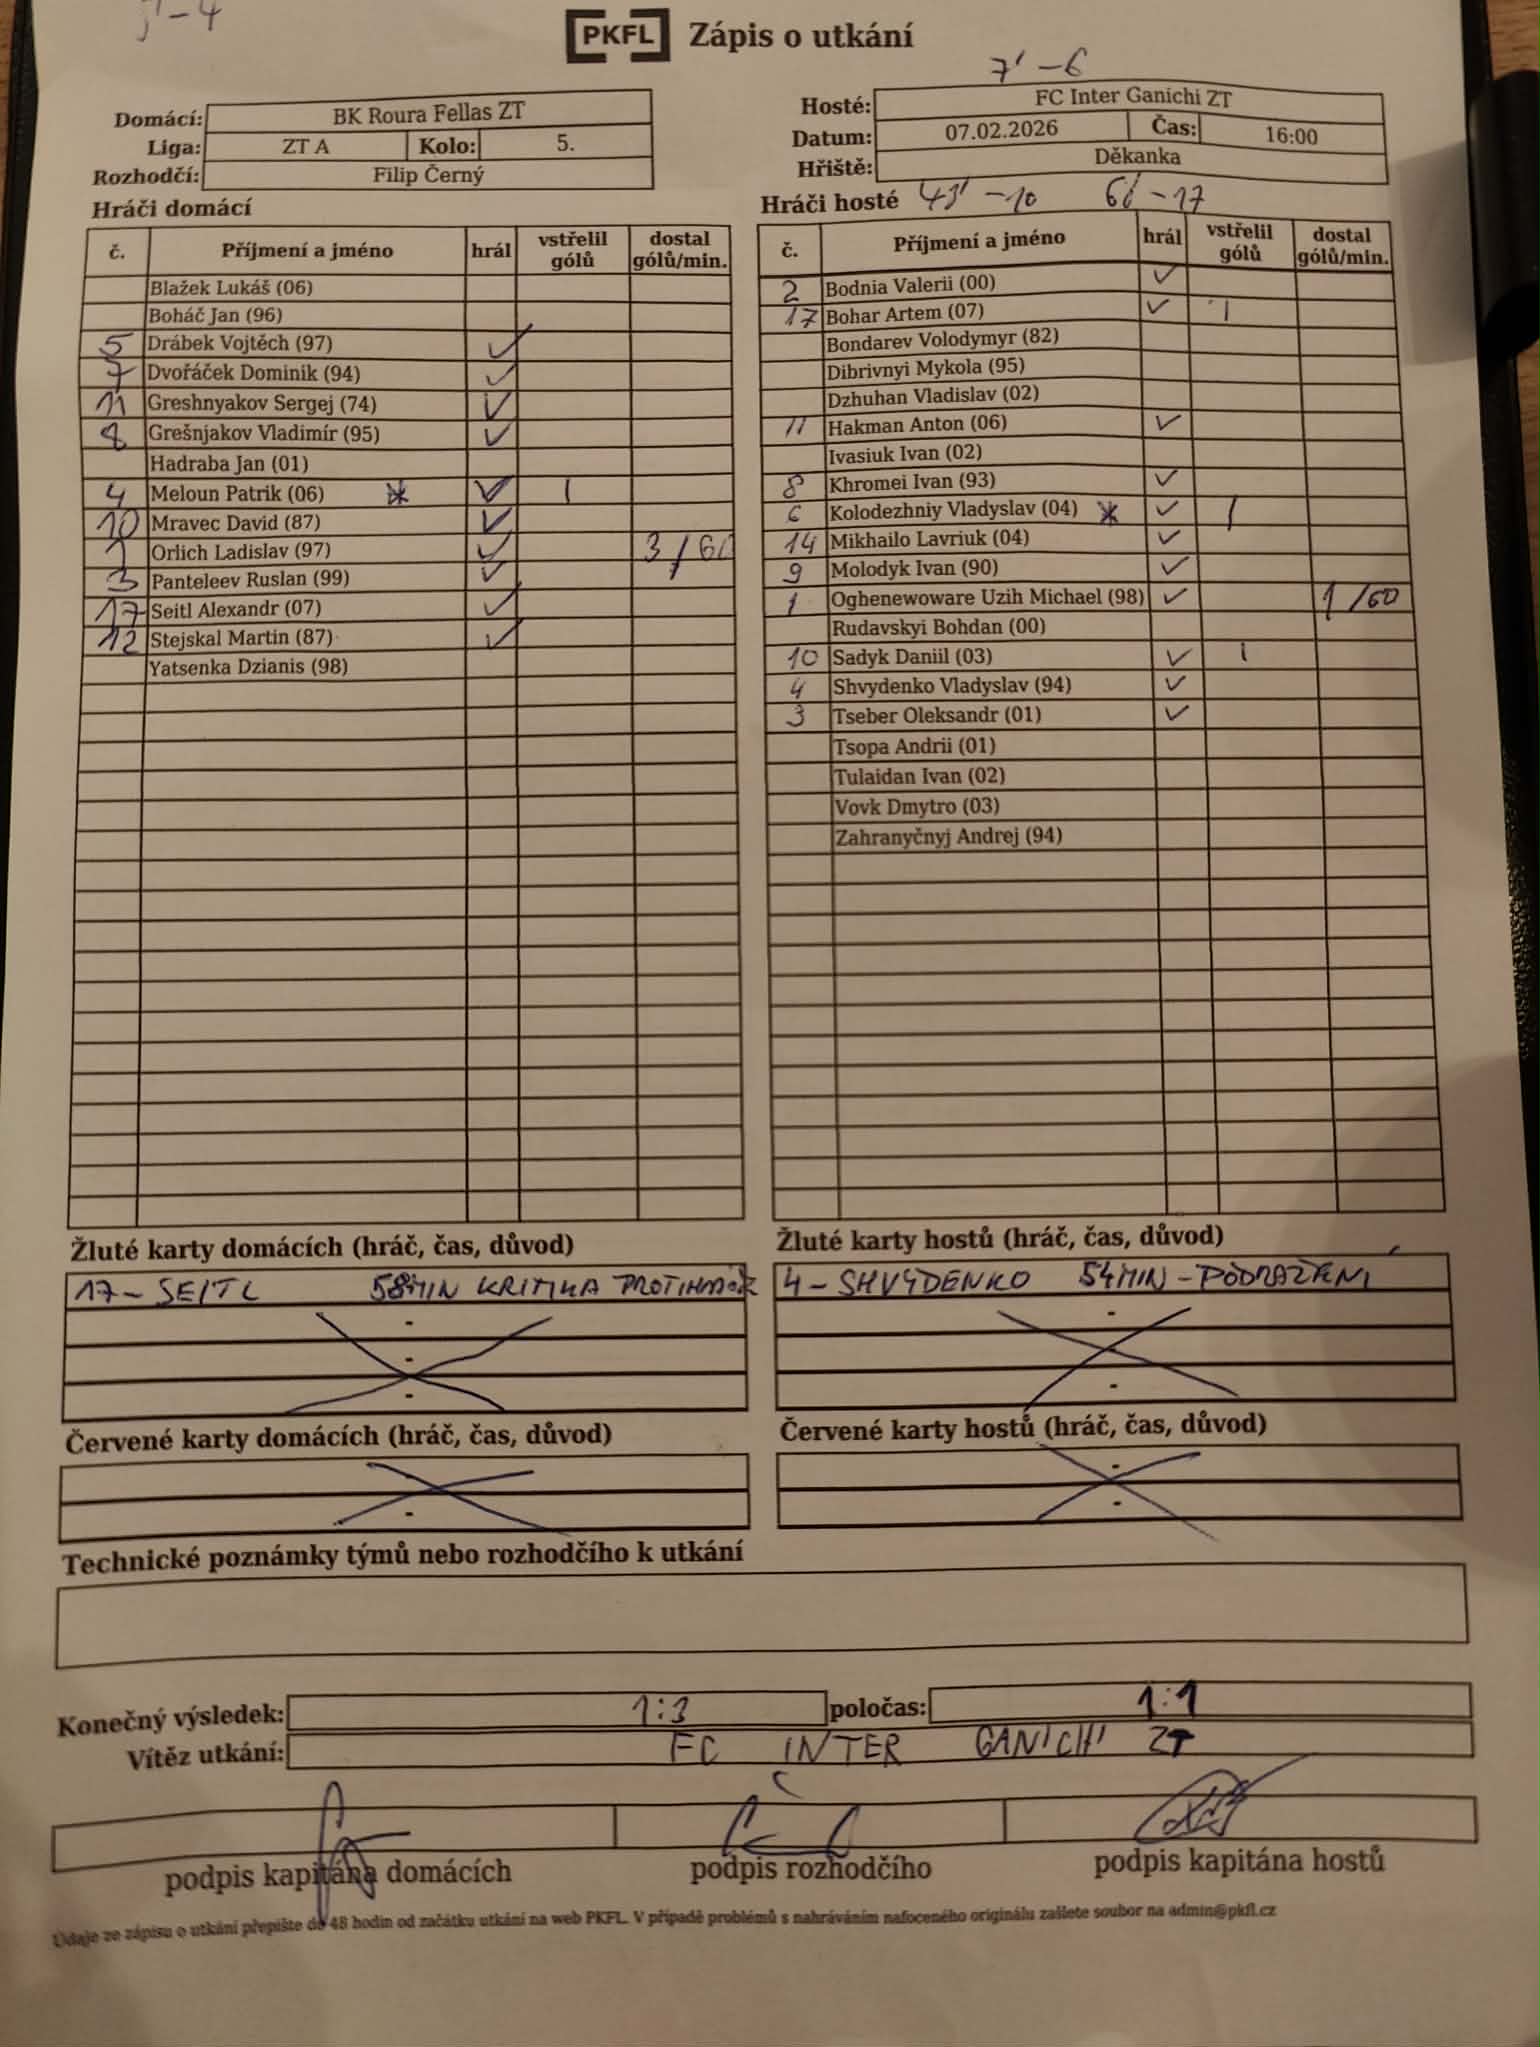 PKFL Zápis o utkání
7' - 6
Domácí: BK Roura Fellas ZT
Liga: ZT A Kolo: 5.
Rozhodčí: Filip Černý
Hosté: FC Inter Ganichi ZT
Datum: 07.02.2026 Čas: 16:00
Hřiště: Děkanka
Hráči domácí
č. Příjmení a jméno hrál vstřelil gólů dostal gólů/min.
Blažek Lukáš (06)
Boháč Jan (96)
5 Drábek Vojtěch (97) ✓
7 Dvořáček Dominik (94) ✓
11 Greshnyakov Sergej (74) ✓
8 Grešnjakov Vladimír (95) ✓
Hadraba Jan (01)
4 Meloun Patrik (06) * ✓ 1
10 Mravec David (87) ✓
1 Orlich Ladislav (97) ✓ 3/60
3 Panteleev Ruslan (99) ✓
17 Seitl Alexandr (07) ✓
12 Stejskal Martin (87) ✓
Yatsenka Dzianis (98)
Hráči hosté - 10 - 17
č. Příjmení a jméno hrál vstřelil gólů dostal gólů/min.
2 Bodnia Valerii (00) ✓
17 Bohar Artem (07) ✓ 1
Bondarev Volodymyr (82)
Dibrivnyi Mykola (95)
Dzhuhan Vladislav (02)
11 Hakman Anton (06) ✓
Ivasiuk Ivan (02)
8 Khromei Ivan (93) ✓
6 Kolodezhniy Vladyslav (04) * ✓ 1
14 Mikhailo Lavriuk (04) ✓
9 Molodyk Ivan (90) ✓
1 Oghenewoware Uzih Michael (98) ✓ 1/60
Rudavskyi Bohdan (00)
10 Sadyk Daniil (03) ✓ 1
4 Shvydenko Vladyslav (94) ✓
3 Tseber Oleksandr (01) ✓
Tsopa Andrii (01)
Tulaidan Ivan (02)
Vovk Dmytro (03)
Zahranyčnyj Andrej (94)
Žluté karty domácích (hráč, čas, důvod)
17 - SEITL 58MIN KRITIKA
-
-
-
Žluté karty hostů (hráč, čas, důvod)
4 - SHVYDENKO 54MIN - PODRAŽENÍ
-
-
Červené karty domácích (hráč, čas, důvod)
-
-
Červené karty hostů (hráč, čas, důvod)
-
-
Technické poznámky týmů nebo rozhodčího k utkání
Konečný výsledek: 1:3 poločas: 1:1
Vítěz utkání: FC INTER GANICHI ZT
podpis kapitána domácích podpis rozhodčího podpis kapitána hostů
Údaje ze zápisu o utkání přepište do 48 hodin od začátku utkání na web PKFL. V případě problémů s nahráváním nafoceného originálu zašlete soubor na admin@pkfl.cz